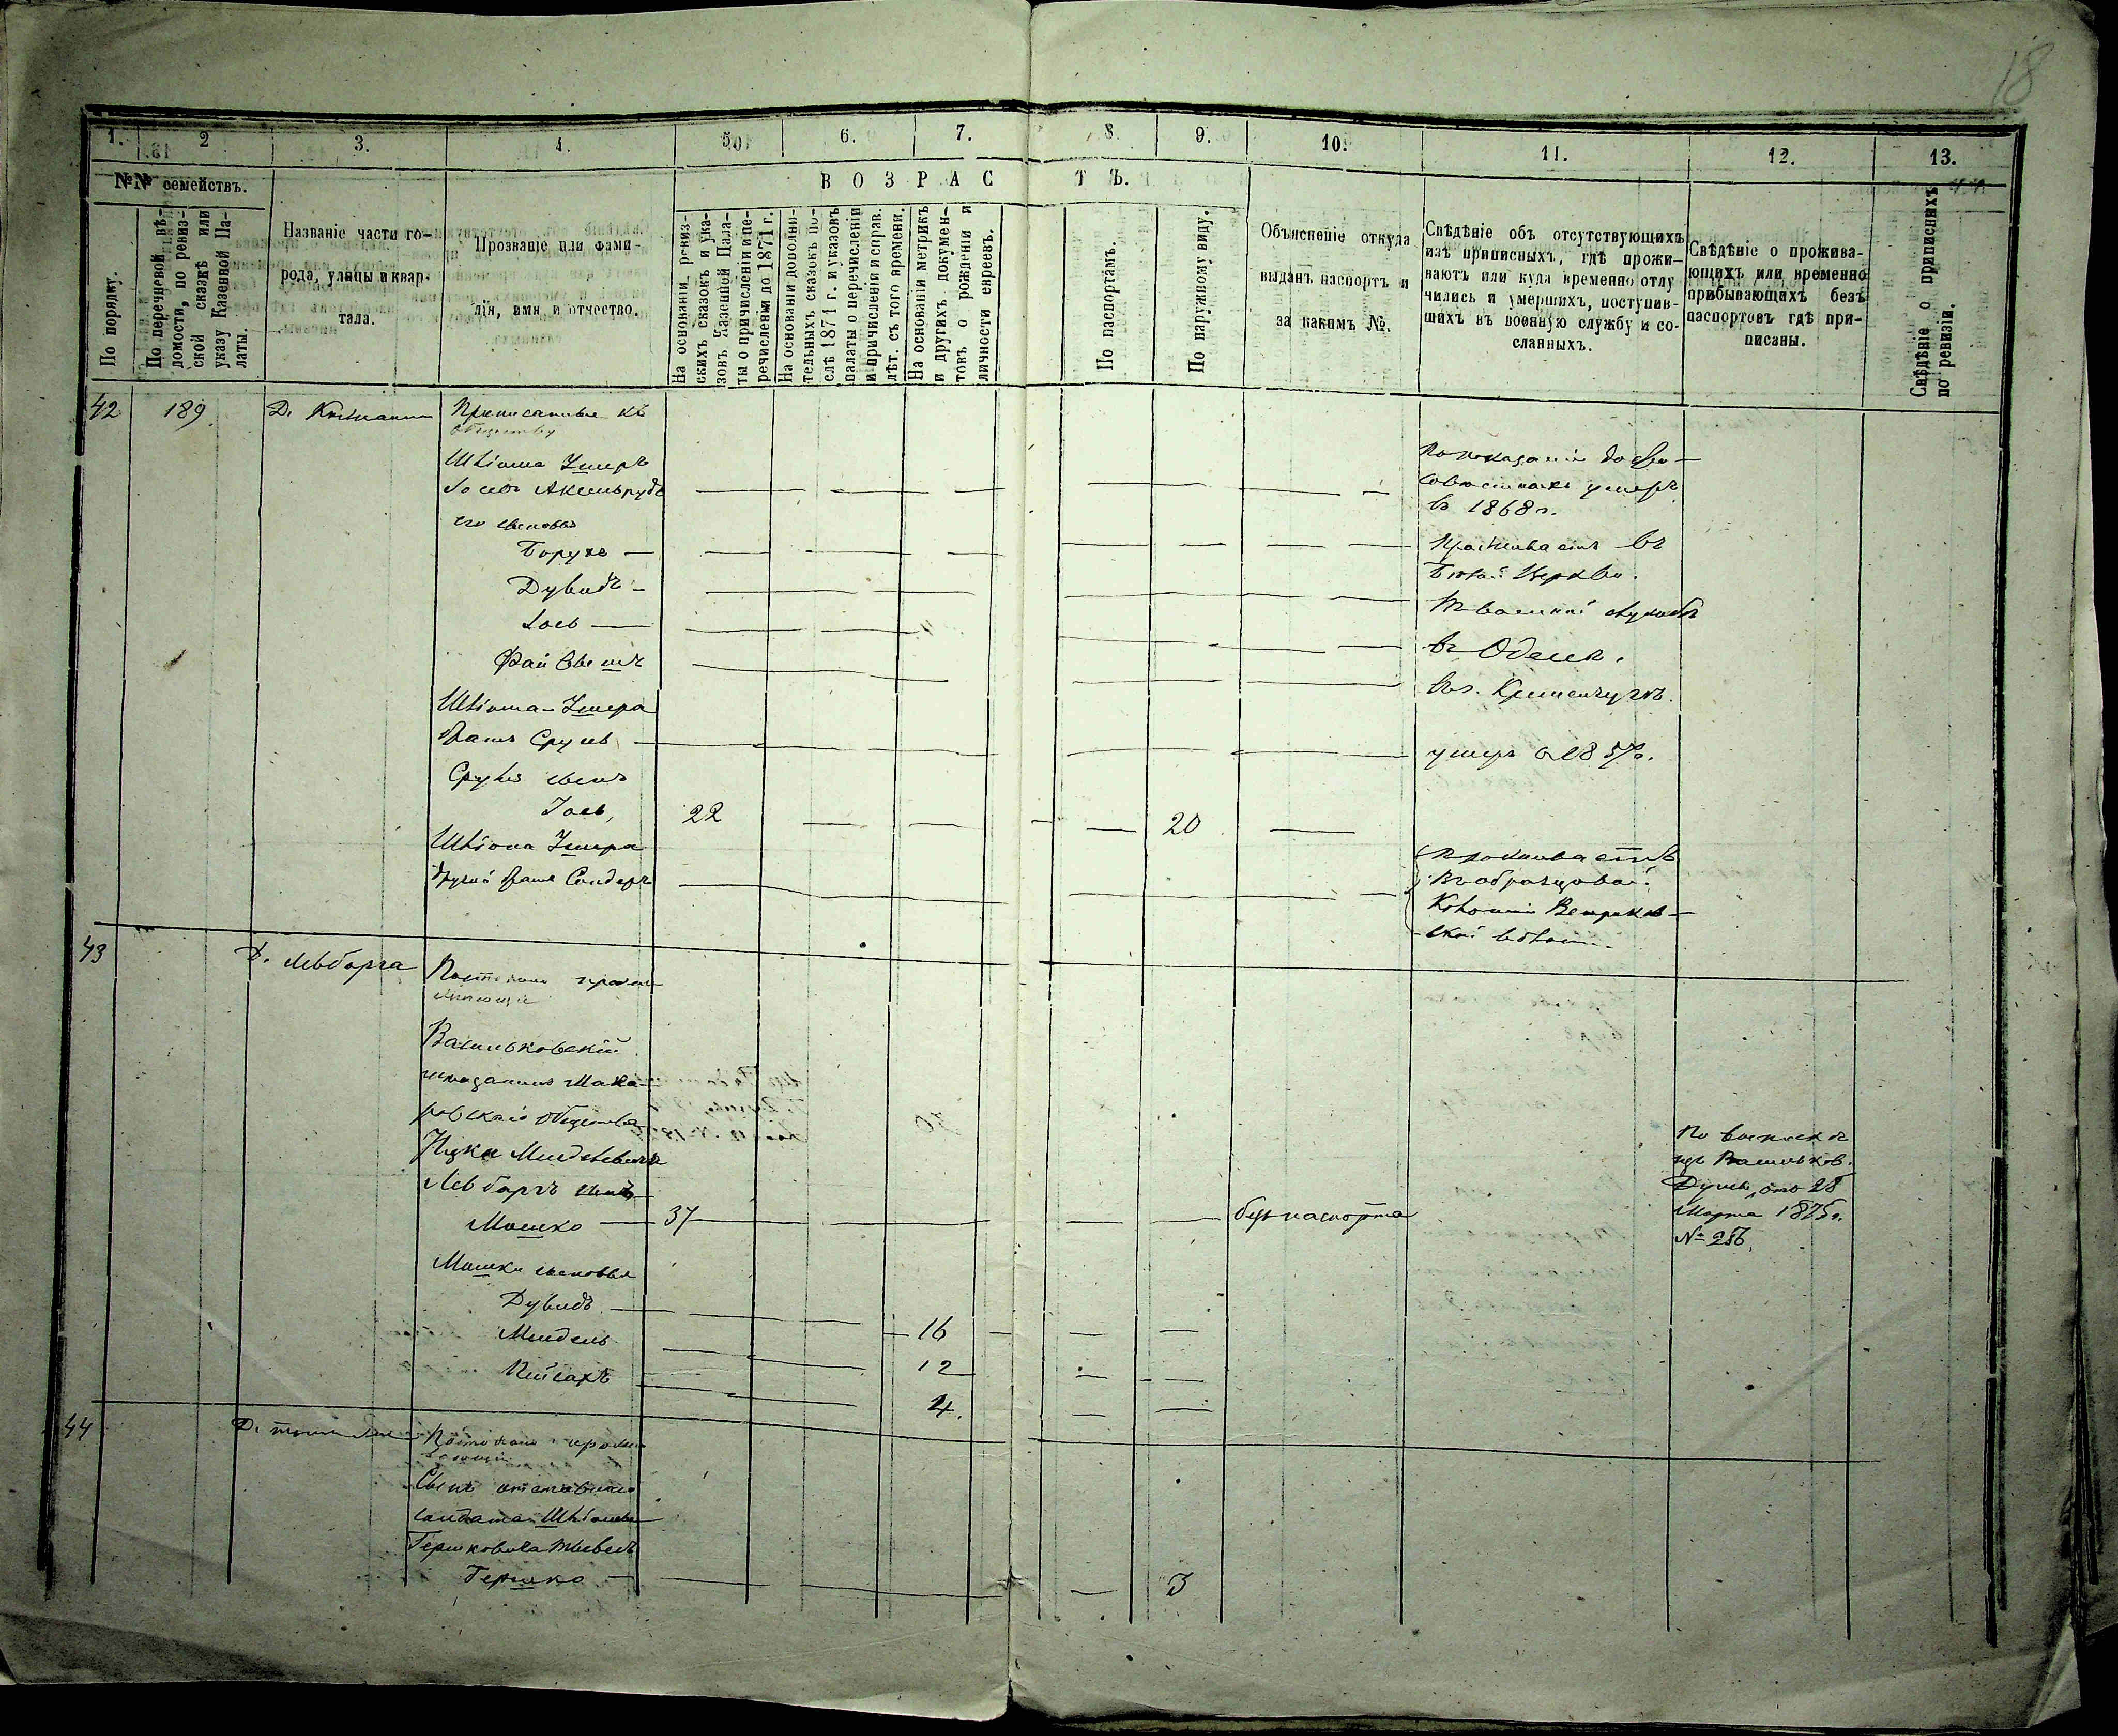 18
1. 2 3. 4. 5. 6. 7. 8. 9. 10. 11. 12. 13.
№№ семействъ.
ВОЗРАСТЪ.
По порядку.
По перечневой вѣ-
домости, по ревиз-
ской сказкѣ или
указу Казенной Па-
латы.
Названіе части го-
рода, улицы и квар-
тала.
Прозваніе или фами-
лія, имя и отчество.
На основаніи ревиз-
скихъ сказокъ и ука-
зовъ Казенной Пала-
ты о причисленіи и пе-
речисленіи до 1871 г.
На основаніи дополни-
тельныхъ сказокъ по-
слѣ 1871 г. и указовъ
палаты о перечисленіи
и причисленіи и справ.
лѣт. съ того времени.
На основаніи метрикъ
и другихъ докумен-
товъ о рожденіи и
личности евреевъ.
По паспортамъ.
По наружному виду.
Объясненіе откуда
выданъ паспортъ и
за какимъ №.
Свѣдѣніе объ отсутствующихъ
изъ приписныхъ, гдѣ прожи-
ваютъ или куда временно отлу
чились и умершихъ, поступив-
шихъ въ военную службу и со-
сланныхъ.
Свѣдѣніе о прожива-
ющихъ или временно
прибывающихъ безъ
паспортовъ гдѣ при-
писаны.
Свѣдѣніе о приписныхъ
по ревизіи.
42 189 Д. Приписанные къ
Обществу
Шліома Змеръ
его сыновья
умеръ
в 1868 г.
Борухъ — Проживаетъ въ
Дувидъ — Бѣлой Церкви.
Іось — Въ военной службѣ
Файвышъ в Одессѣ.
Шліома-Змера въ г. Кременчугѣ.
братъ Сруль умеръ в 185
Сруля сынъ
Іось, 22 20
Шліома Змера проживаетъ
другой братъ Сандеръ въ образцовой
Колоніи
43 Д. Левборга Постоянно прожи-
вающіе
Васильковскій
мѣщанинъ Мака-
ровскаго общества
Ицка Менделевича
Левборгъ сынъ
Мошко — 37 безъ паспорта
По выпискѣ
изъ Васильков.
Думы отъ 28
Марта 1875 г.
№ 256.
Мошки сыновья
Дувидъ 16
Мендель 12
Пейсахъ 4.
44 Д. Постоянно прожи-
вающій
Сынъ отставного
солдата Шліомы
Гершковича
Гершко — 3